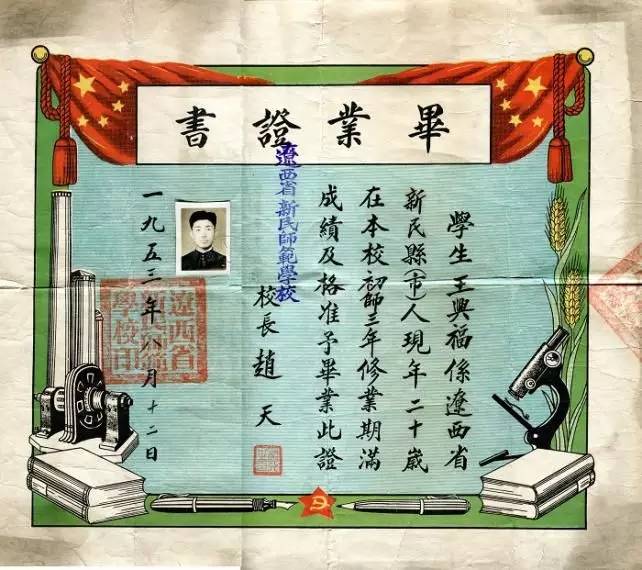 畢業證書
學生王興福係遼西省
新民縣(市)人現年二十歲
在本校初師三年修業期滿
成績及格准予畢業此證
遼西省新民師範學校
校長趙天
一九五三年八月十二日
遼西省新民師範學校印